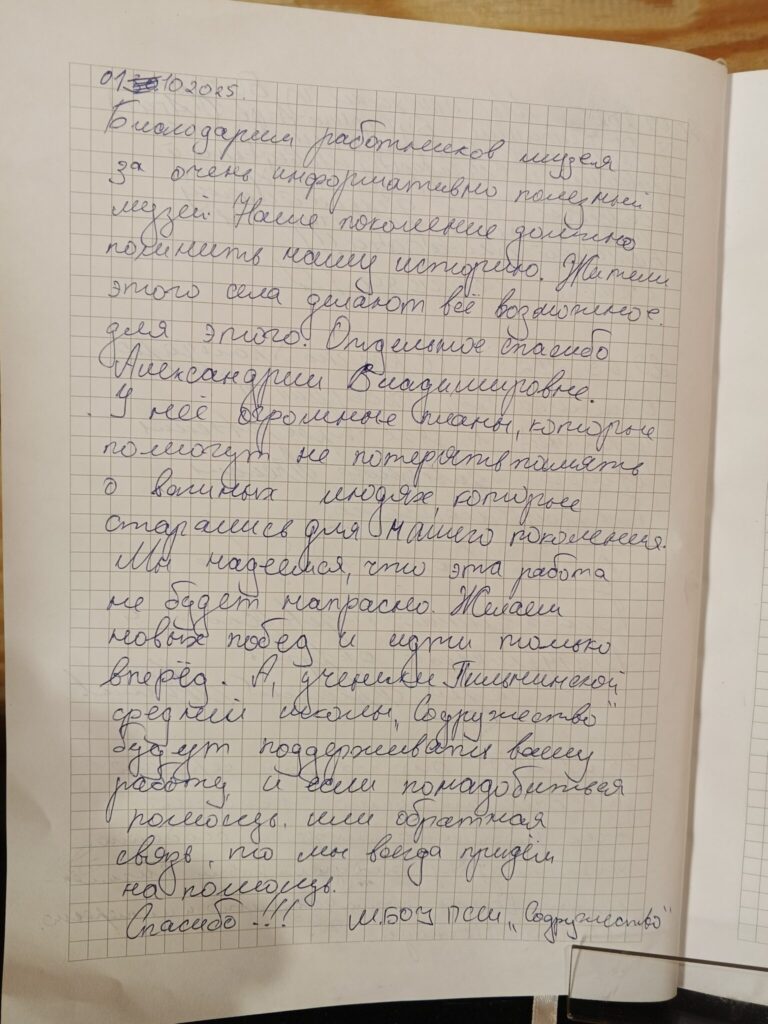 01.10.2025.
Благодарим работников музея
за очень информативно полезный
музей. Наше поколение должно
помнить нашу историю. Жители
этого села делают всё возможное
для этого. Отдельное спасибо
Александрии Владимировне.
У неё огромные планы, которые
помогут не потерять память
о важных людях, которые
старались для нашего поколения.
Мы надеемся, что эта работа
не будет напрасно. Желаем
новых побед и идти только
вперёд. А, ученики Пильнинской
средней школы „Содружество"
будут поддерживать вашу
работу, и если понадобиться
помощь. или обратная
связь, то мы всегда придём
на помощь.
Спасибо!!! МБОУ ПСШ „Содружество"